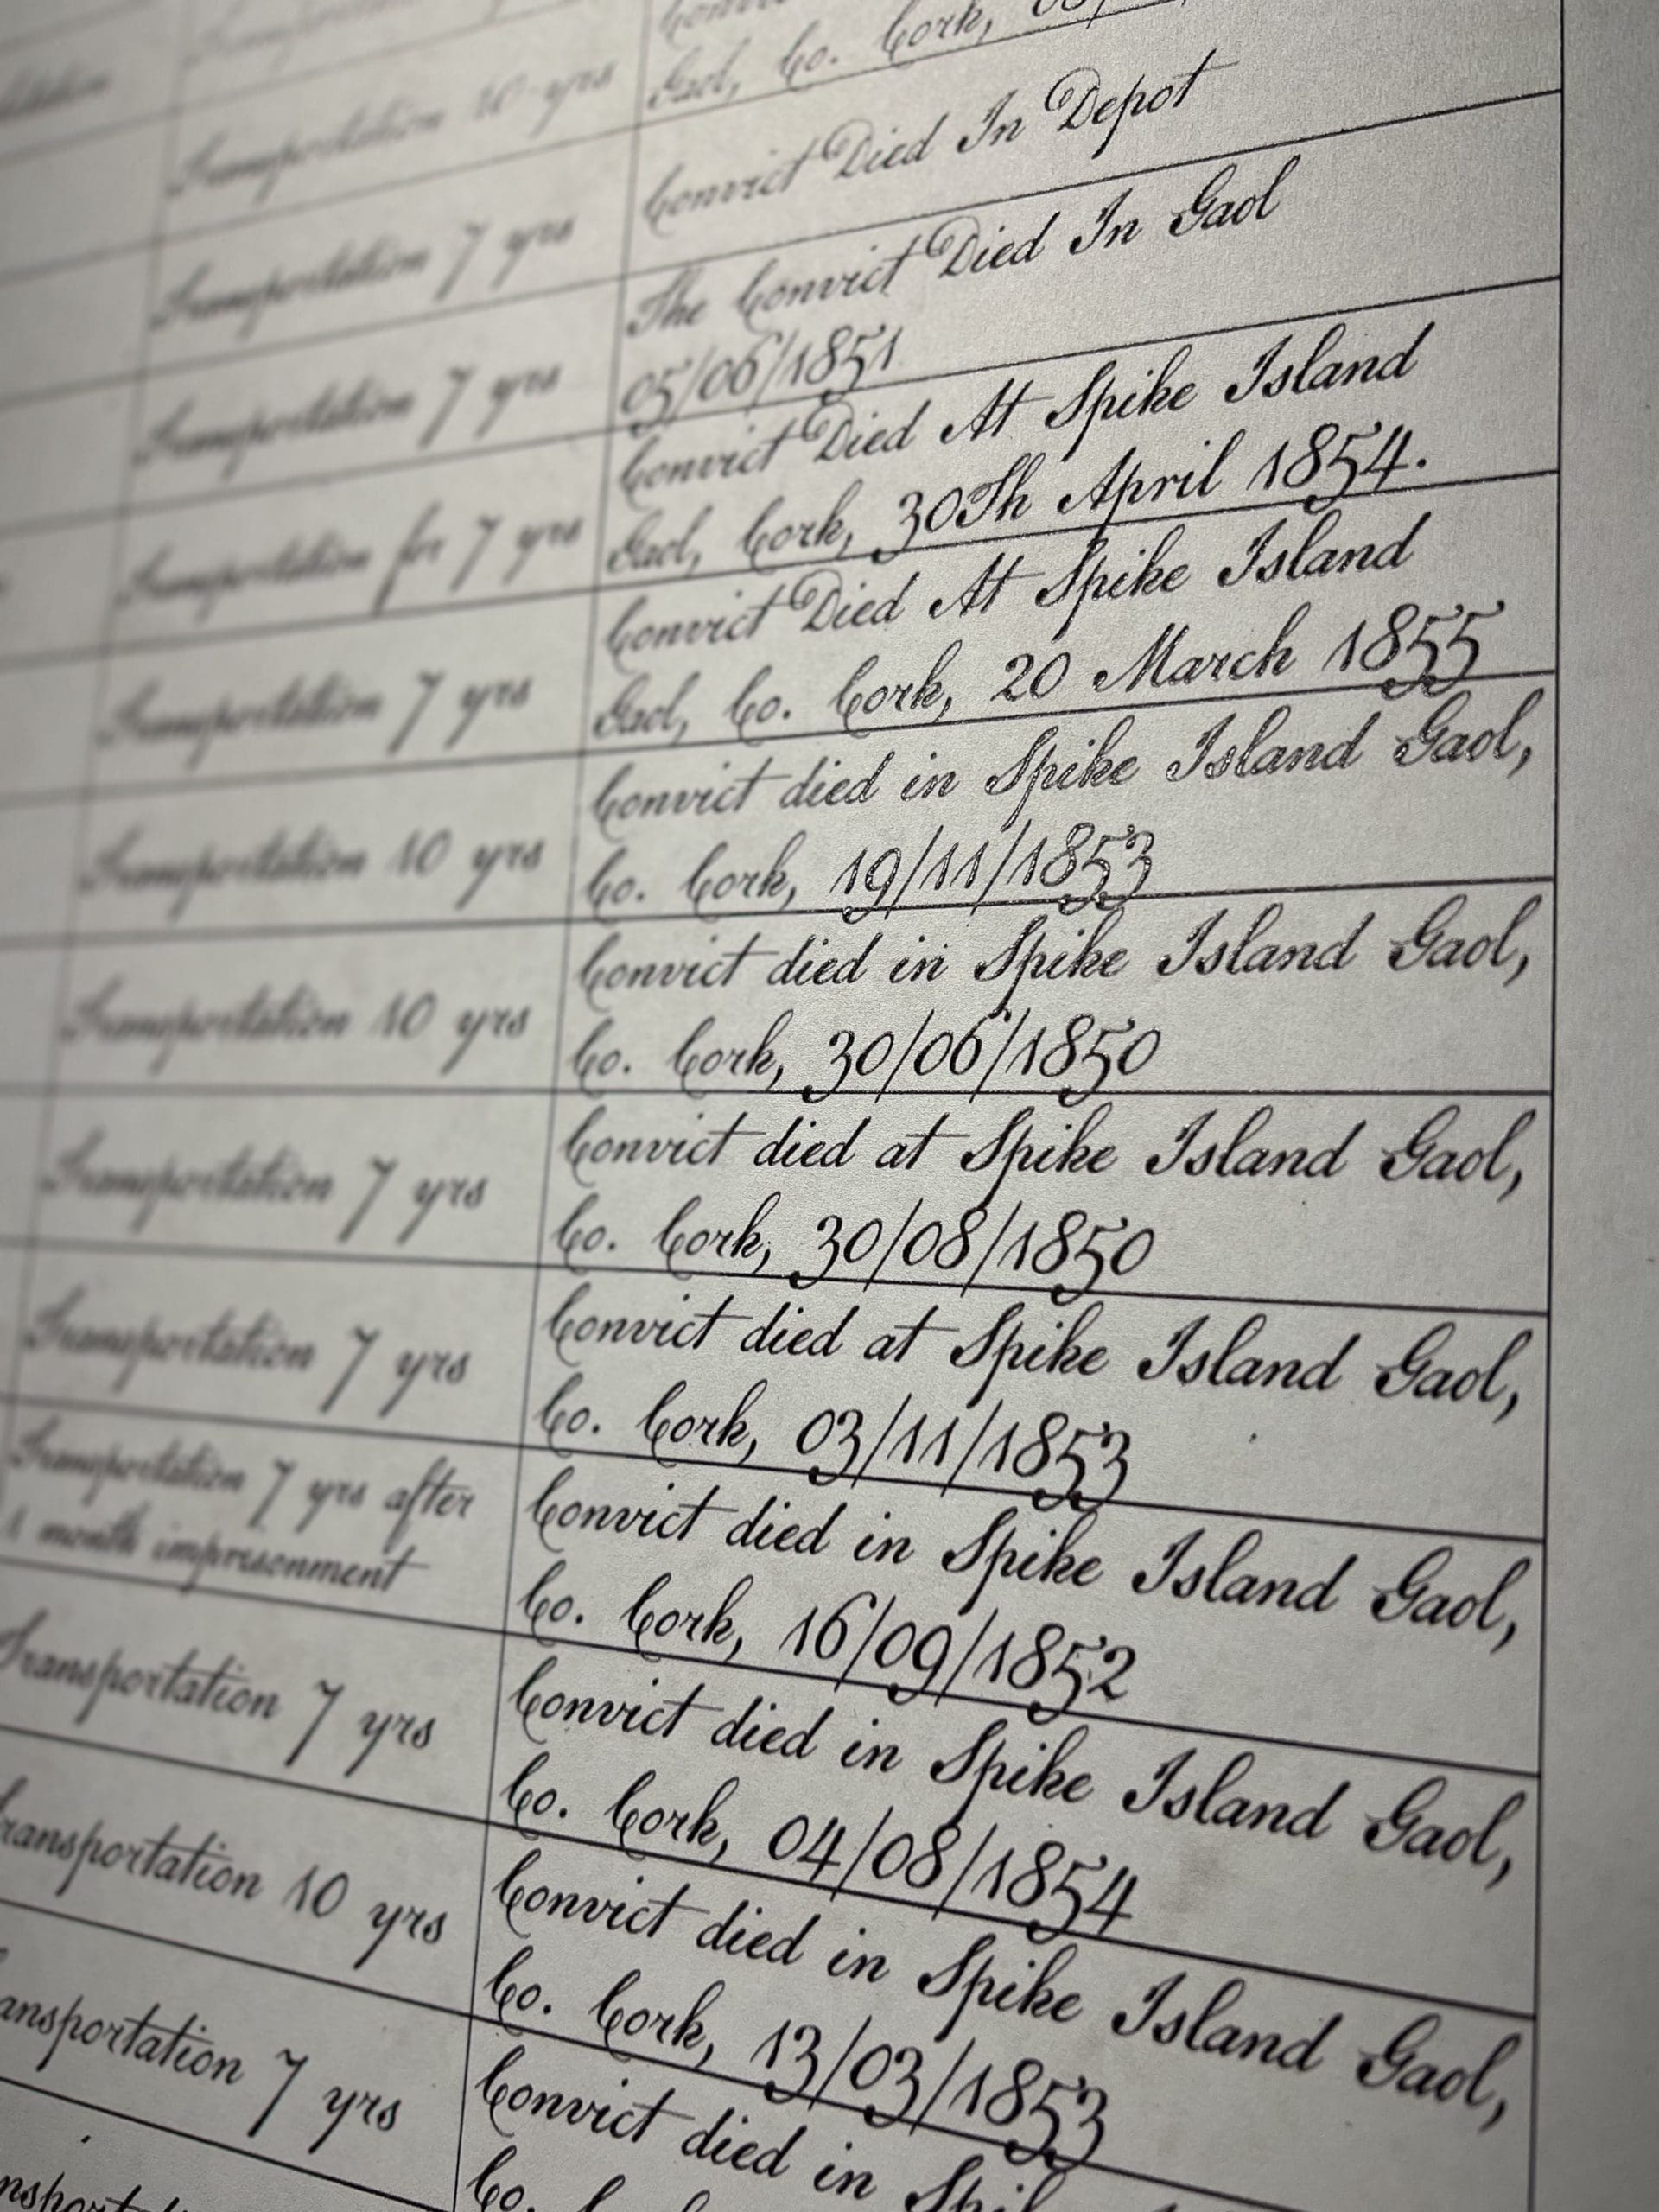 Transportation 10 yrs
Gaol, Co. Cork,
Transportation 7 yrs
Convict Died In Depot
Transportation 7 yrs
The Convict Died In Gaol
05/06/1851
Transportation for 7 yrs
Convict Died At Spike Island
Gaol, Cork, 30Th April 1854.
Transportation 7 yrs
Convict Died At Spike Island
Gaol, Co. Cork, 20 March 1855
Transportation 10 yrs
Convict died in Spike Island Gaol,
Co. Cork, 19/11/1853
Transportation 10 yrs
Convict died in Spike Island Gaol,
Co. Cork, 30/06/1850
Transportation 7 yrs
Convict died at Spike Island Gaol,
Co. Cork, 30/08/1850
Transportation 7 yrs
Convict died at Spike Island Gaol,
Co. Cork, 03/11/1853
Transportation 7 yrs after
1 month imprisonment
Convict died in Spike Island Gaol,
Co. Cork, 16/09/1852
Transportation 7 yrs
Convict died in Spike Island Gaol,
Co. Cork, 04/08/1854
ransportation 10 yrs
Convict died in Spike Island Gaol,
Co. Cork, 13/03/1853
ansportation 7 yrs
Convict died in Spik
Co.